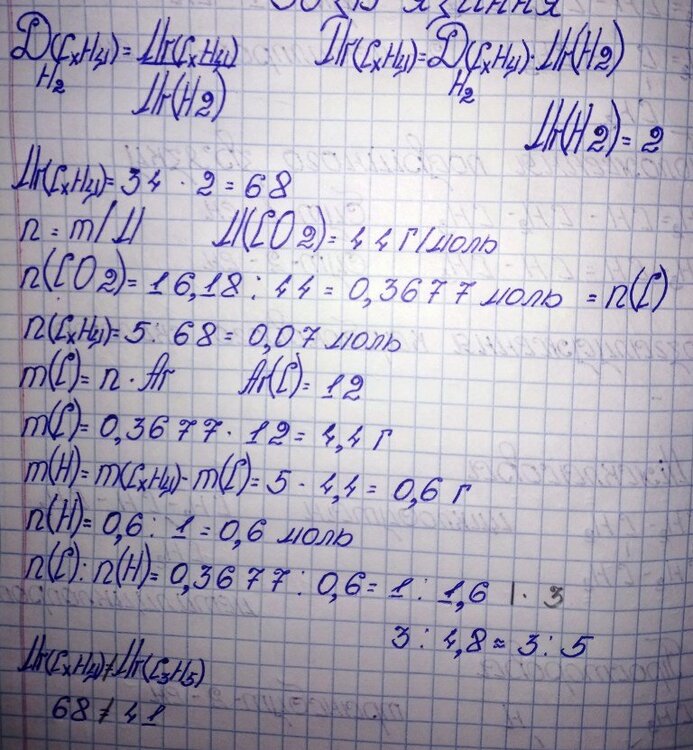 Розв'язання
D(CxHy) = Mr(CxHy) Mr(CxHy) = D(CxHy) · Mr(H2)
H2 Mr(H2) H2
Mr(H2) = 2
Mr(CxHy) = 34 · 2 = 68
n = m/M M(CO2) = 44 г/моль
n(CO2) = 16,18 : 44 = 0,3677 моль = n(C)
n(CxHy) = 5 : 68 = 0,07 моль
m(C) = n · Ar Ar(C) = 12
m(C) = 0,3677 · 12 = 4,4 г
m(H) = m(CxHy) - m(C) = 5 - 4,4 = 0,6 г
n(H) = 0,6 : 1 = 0,6 моль
n(C) : n(H) = 0,3677 : 0,6 = 1 : 1,6 | · 3
3 : 4,8 ≈ 3 : 5
Mr(CxHy) ≠ Mr(C3H5)
68 ≠ 41